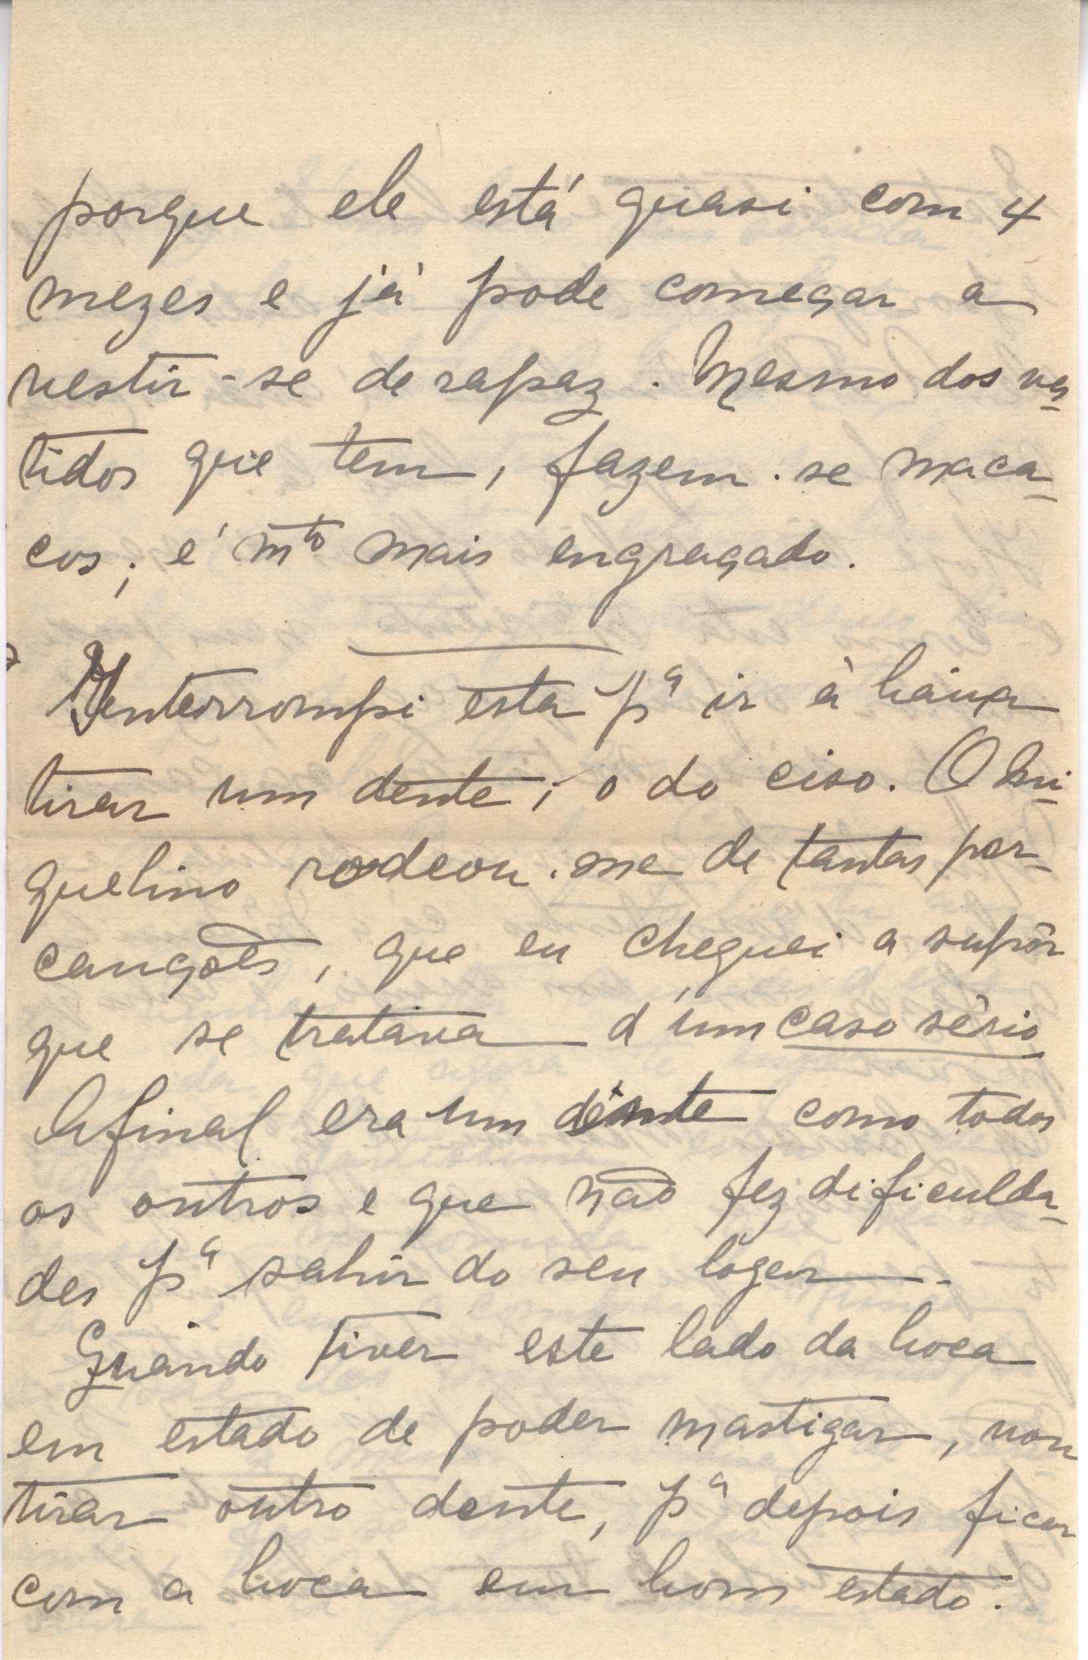 porque ele está quasi com 4
mezes e já pode começar a
vestir-se de rapaz. Mesmo dos ves-
tidos que tem, fazem-se maca-
cos; é mto mais engraçado.
Interrompi esta pª ir à baixa
tirar um dente; o do ciso. O Mi-
quelino rodeou-me de tantas per-
cauções, que eu cheguei a supôr
que se tratava d'um caso sério
Afinal era um dente como todos
os outros e que não fez dificulda-
des pª sahir do seu logar.
Quando tiver este lado da boca
em estado de poder mastigar, vou
tirar outro dente, pª depois ficar
com a boca em bom estado.